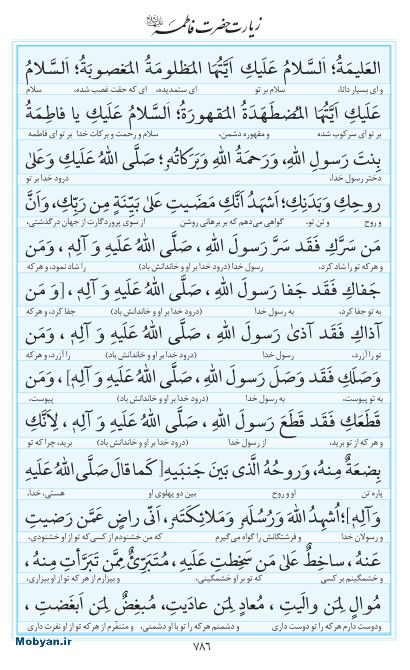 زیارت حضرت فاطمه
العَلیمَةُ؛ اَلسَّلامُ عَلَیكِ اَیَّتُهَا المَظلومَةُ المَغصوبَةُ؛ اَلسَّلامُ
و ای بسیار دانا، سلام بر تو ای ستمدیده، و ای که حقت غصب شده، سلام
عَلَیكِ اَیَّتُهَا المُضطَهَدَةُ المَقهورَةُ؛ اَلسَّلامُ عَلَیكِ یا فاطِمَةُ
بر تو ای سرکوب شده و مقهوره دشمن، سلام و رحمت و برکات خدا بر تو ای فاطمه
بِنتَ رَسولِ اللهِ، وَرَحمَةُ اللهِ وَبَرَكاتُهُ؛ صَلَّی اللهُ عَلَیكِ وَعَلیٰ
دختر رسول خدا، درود خدا بر تو
روحِكِ وَبَدَنِكِ؛ اَشهَدُ اَنَّكِ مَضَیتِ عَلیٰ بَیِّنَةٍ مِن رَبِّكِ، وَاَنَّ
و روح و تن تو، گواهی می‌دهم که بر برهانی روشن از سوی پروردگارت از جهان درگذشتی،
مَن سَرَّكِ فَقَد سَرَّ رَسولَ اللهِ ، صَلَّی اللهُ عَلَیهِ وَ آلِهِ ، وَمَن
و هر که تو را شاد کرد، رسول خدا (درود خدا بر او و خاندانش باد) را شاد نمود، و هر که
جَفاكِ فَقَد جَفا رَسولَ اللهِ ، صَلَّی اللهُ عَلَیهِ وَ آلِهِ ، [وَ مَن
به تو جفا کرد، به رسول خدا (درود خدا بر او و خاندانش باد) جفا کرد، و هر که
آذاكِ فَقَد آذیٰ رَسولَ اللهِ ، صَلَّی اللهُ عَلَیهِ وَ آلِهِ ، وَمَن
تو را آزرد، رسول خدا (درود خدا بر او و خاندانش باد) را آزرد، و هر که
وَصَلَكِ فَقَد وَصَلَ رَسولَ اللهِ ، صَلَّی اللهُ عَلَیهِ وَ آلِهِ] ، وَمَن
به تو پیوست، به رسول خدا (درود خدا بر او و خاندانش باد) پیوست، و هر که
قَطَعَكِ فَقَد قَطَعَ رَسولَ اللهِ ، صَلَّی اللهُ عَلَیهِ وَ آلِهِ ، لِاَنَّكِ
و هر که از تو برید، از رسول خدا (درود خدا بر او و خاندانش باد) برید، چرا که تو
بِضعَةٌ مِنهُ، وَروحُهُ الَّذی بَینَ جَنبَیهِ [كَما قالَ صَلَّی اللهُ عَلَیهِ
پاره تن او و روح بین دو پهلوی او هستی، خدا،
وَآلِهِ]؛ اُشهِدُ اللهَ وَرُسُلَهُ وَمَلائِكَتَهُ، اَنّی راضٍ عَمَّن رَضیتِ
و رسولان خدا و فرشتگانش را گواه می‌گیرم که من خشنودم از کسی که تو از او خشنودی،
عَنهُ ، ساخِطٌ عَلیٰ مَن سَخِطتِ عَلَیهِ ، مُتَبَرِّئٌ مِمَّن تَبَرَّأتِ مِنهُ ،
و خشمگینم بر کسی که تو بر او خشمگینی، و بیزارم از هر که تو از او بیزاری،
مُوالٍ لِمَن والَیتِ ، مُعادٍ لِمَن عادَیتِ، مُبغِضٌ لِمَن اَبغَضتِ ،
و دوست دارم هر که را تو دوست داری و دشمنم هر که را تو با او دشمنی، و متنفّرم از هر که تو از او نفرت داری
Mobyan.ir
۷۸۶